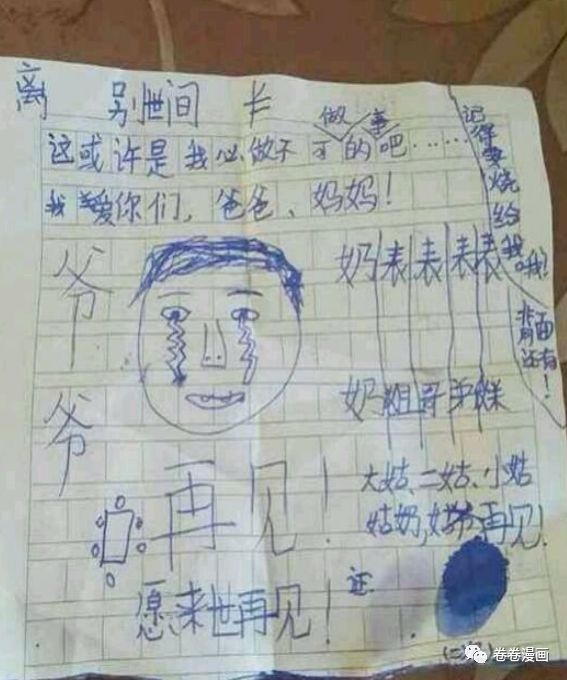 离 别世间
做 事
这或许是我必做不可的吧……
我爱你们，爸爸、妈妈！
记得要烧给我哦！
背面还有！
爷爷
奶奶
表姐
表哥
表
表妹
再见！
大姑、二姑、小姑
姑奶，姑爷再见！
愿来世再见！
还
卷卷漫画